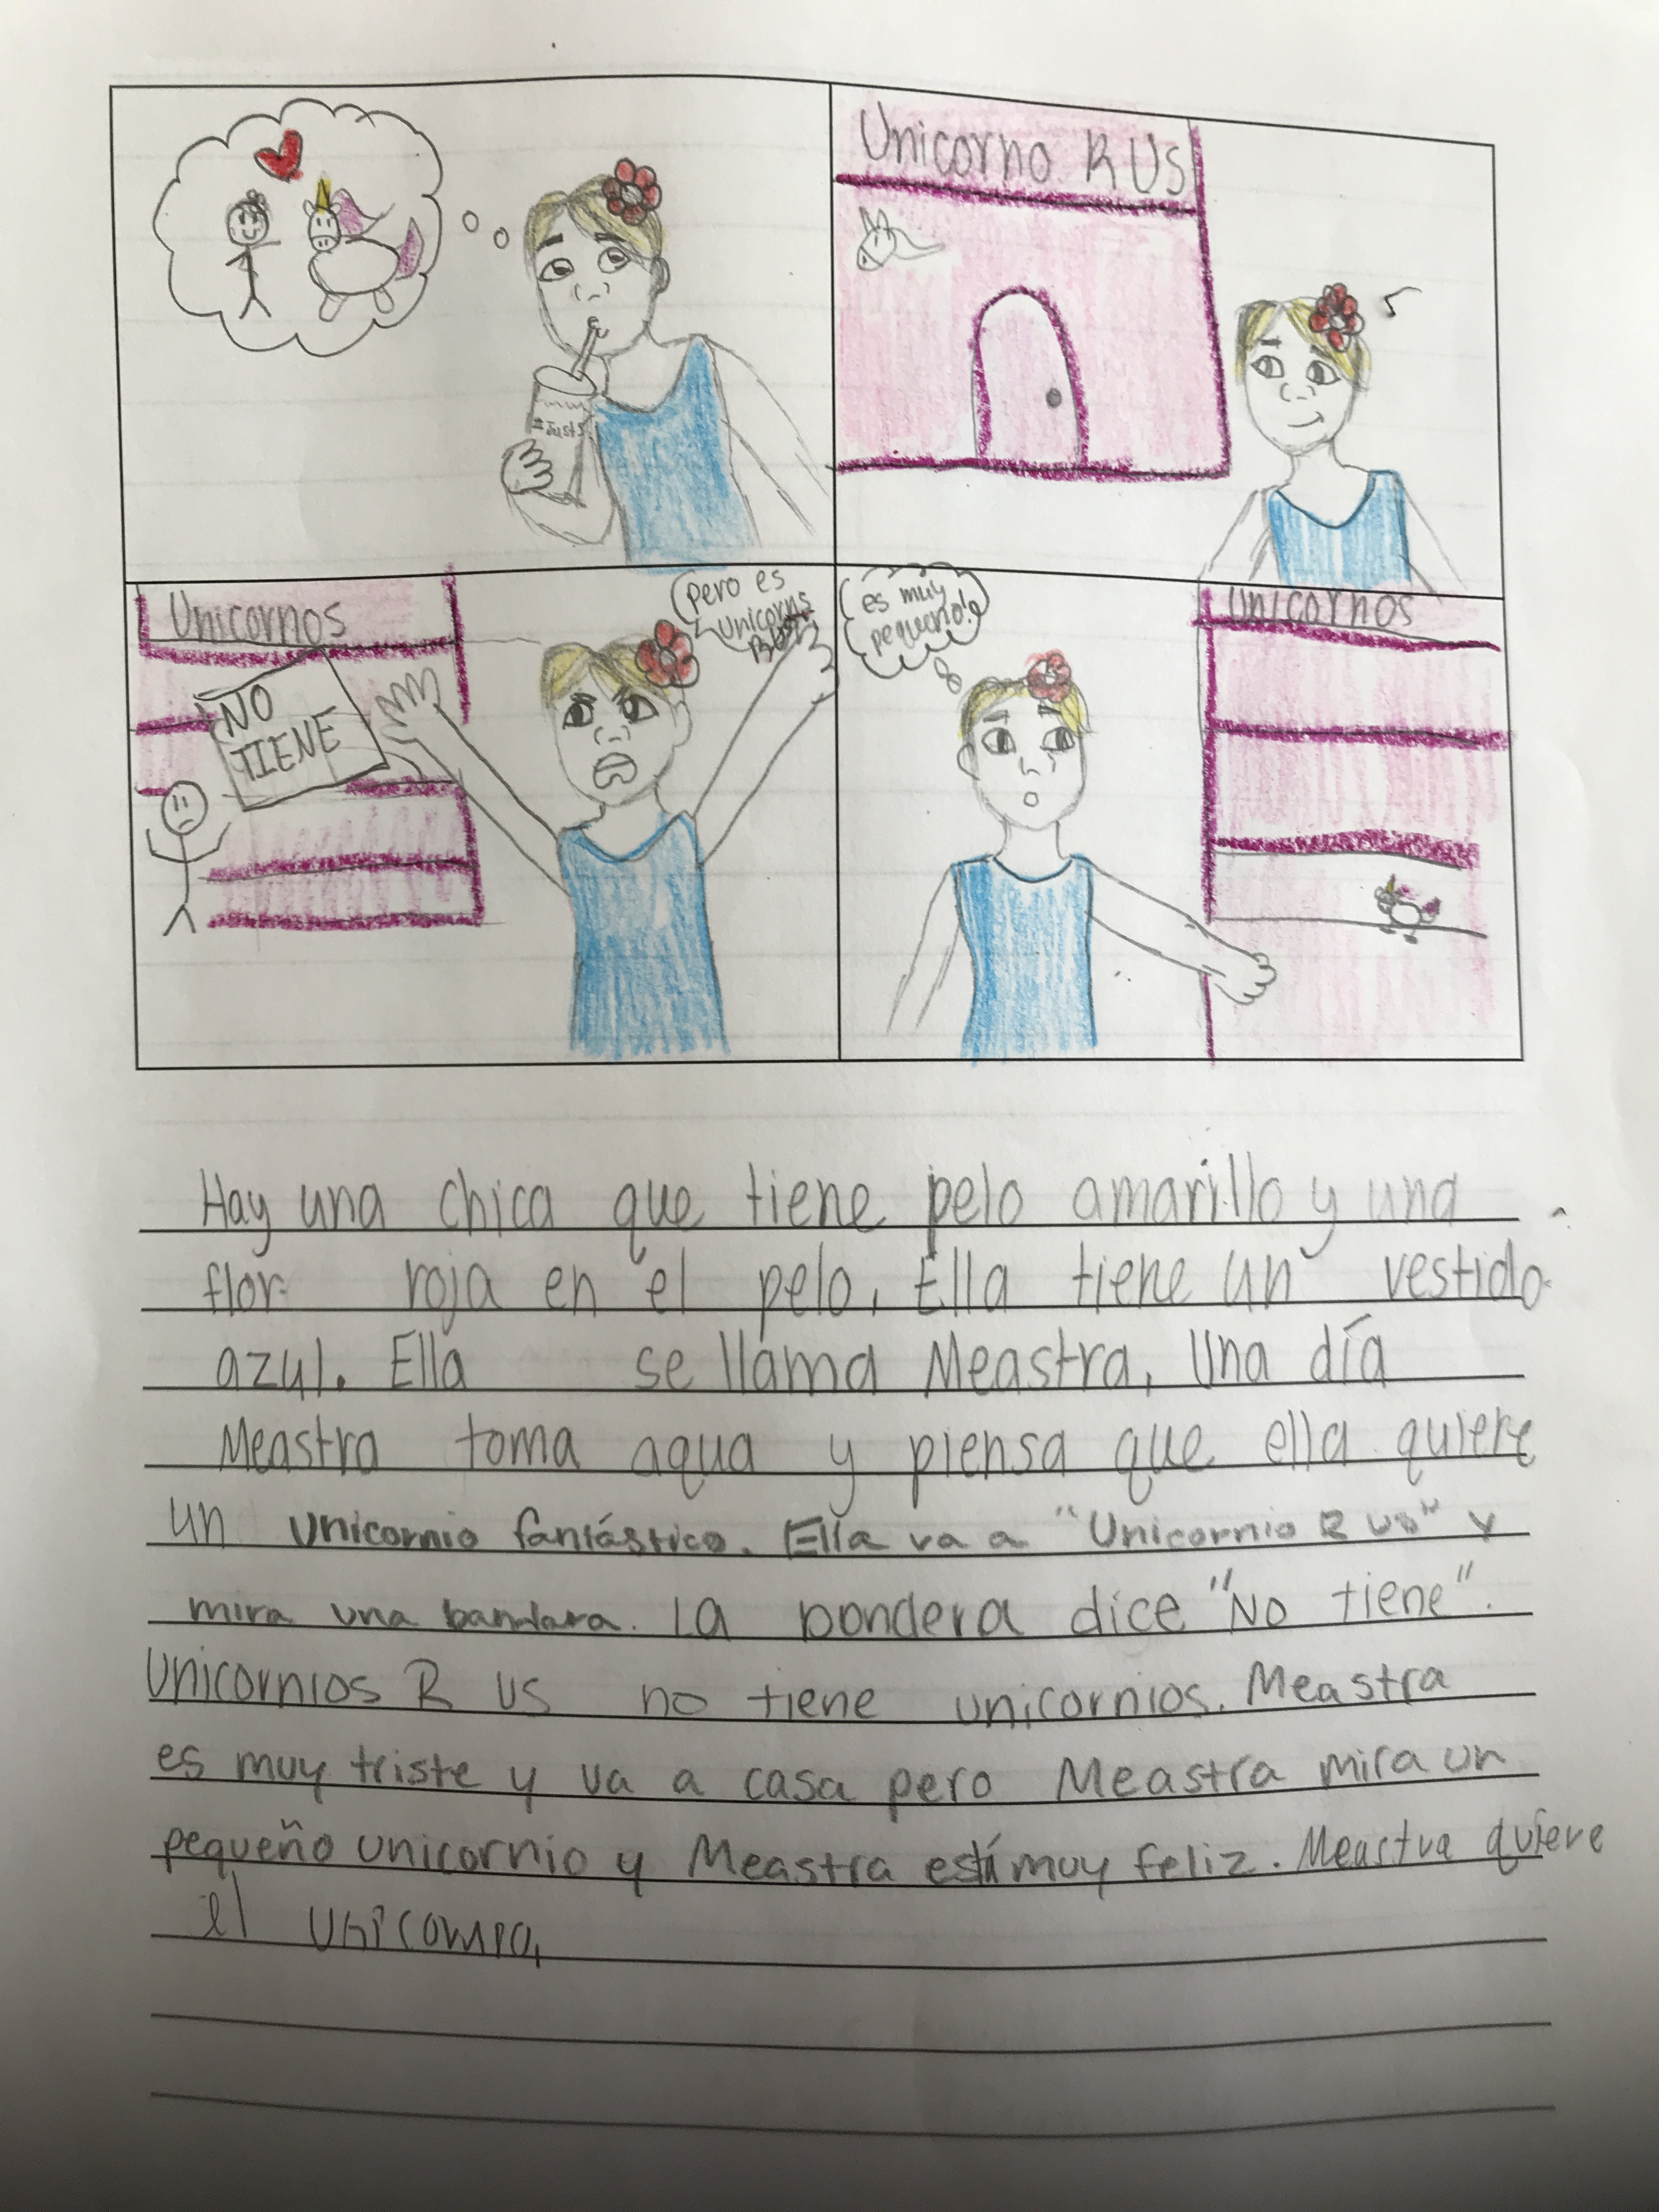 #Just
Unicorno R Us
Unicornos
NO
TIENE
Pero es
Unicorns
R Us
es muy
pequeno!
Unicornos
Hay una chica que tiene pelo amarillo y una
flor roja en el pelo. Ella tiene un vestido
azul. Ella se llama Meastra. Una día
Meastra toma agua y piensa que ella quiere
un unicornio fantástico. Ella va a "Unicornio R us" y
mira una bandara. La bondera dice "No tiene".
Unicornios R us no tiene unicornios. Meastra
es muy triste y va a casa pero Meastra mira un
pequeño unicornio y Meastra está muy feliz. Meastra quiere
el